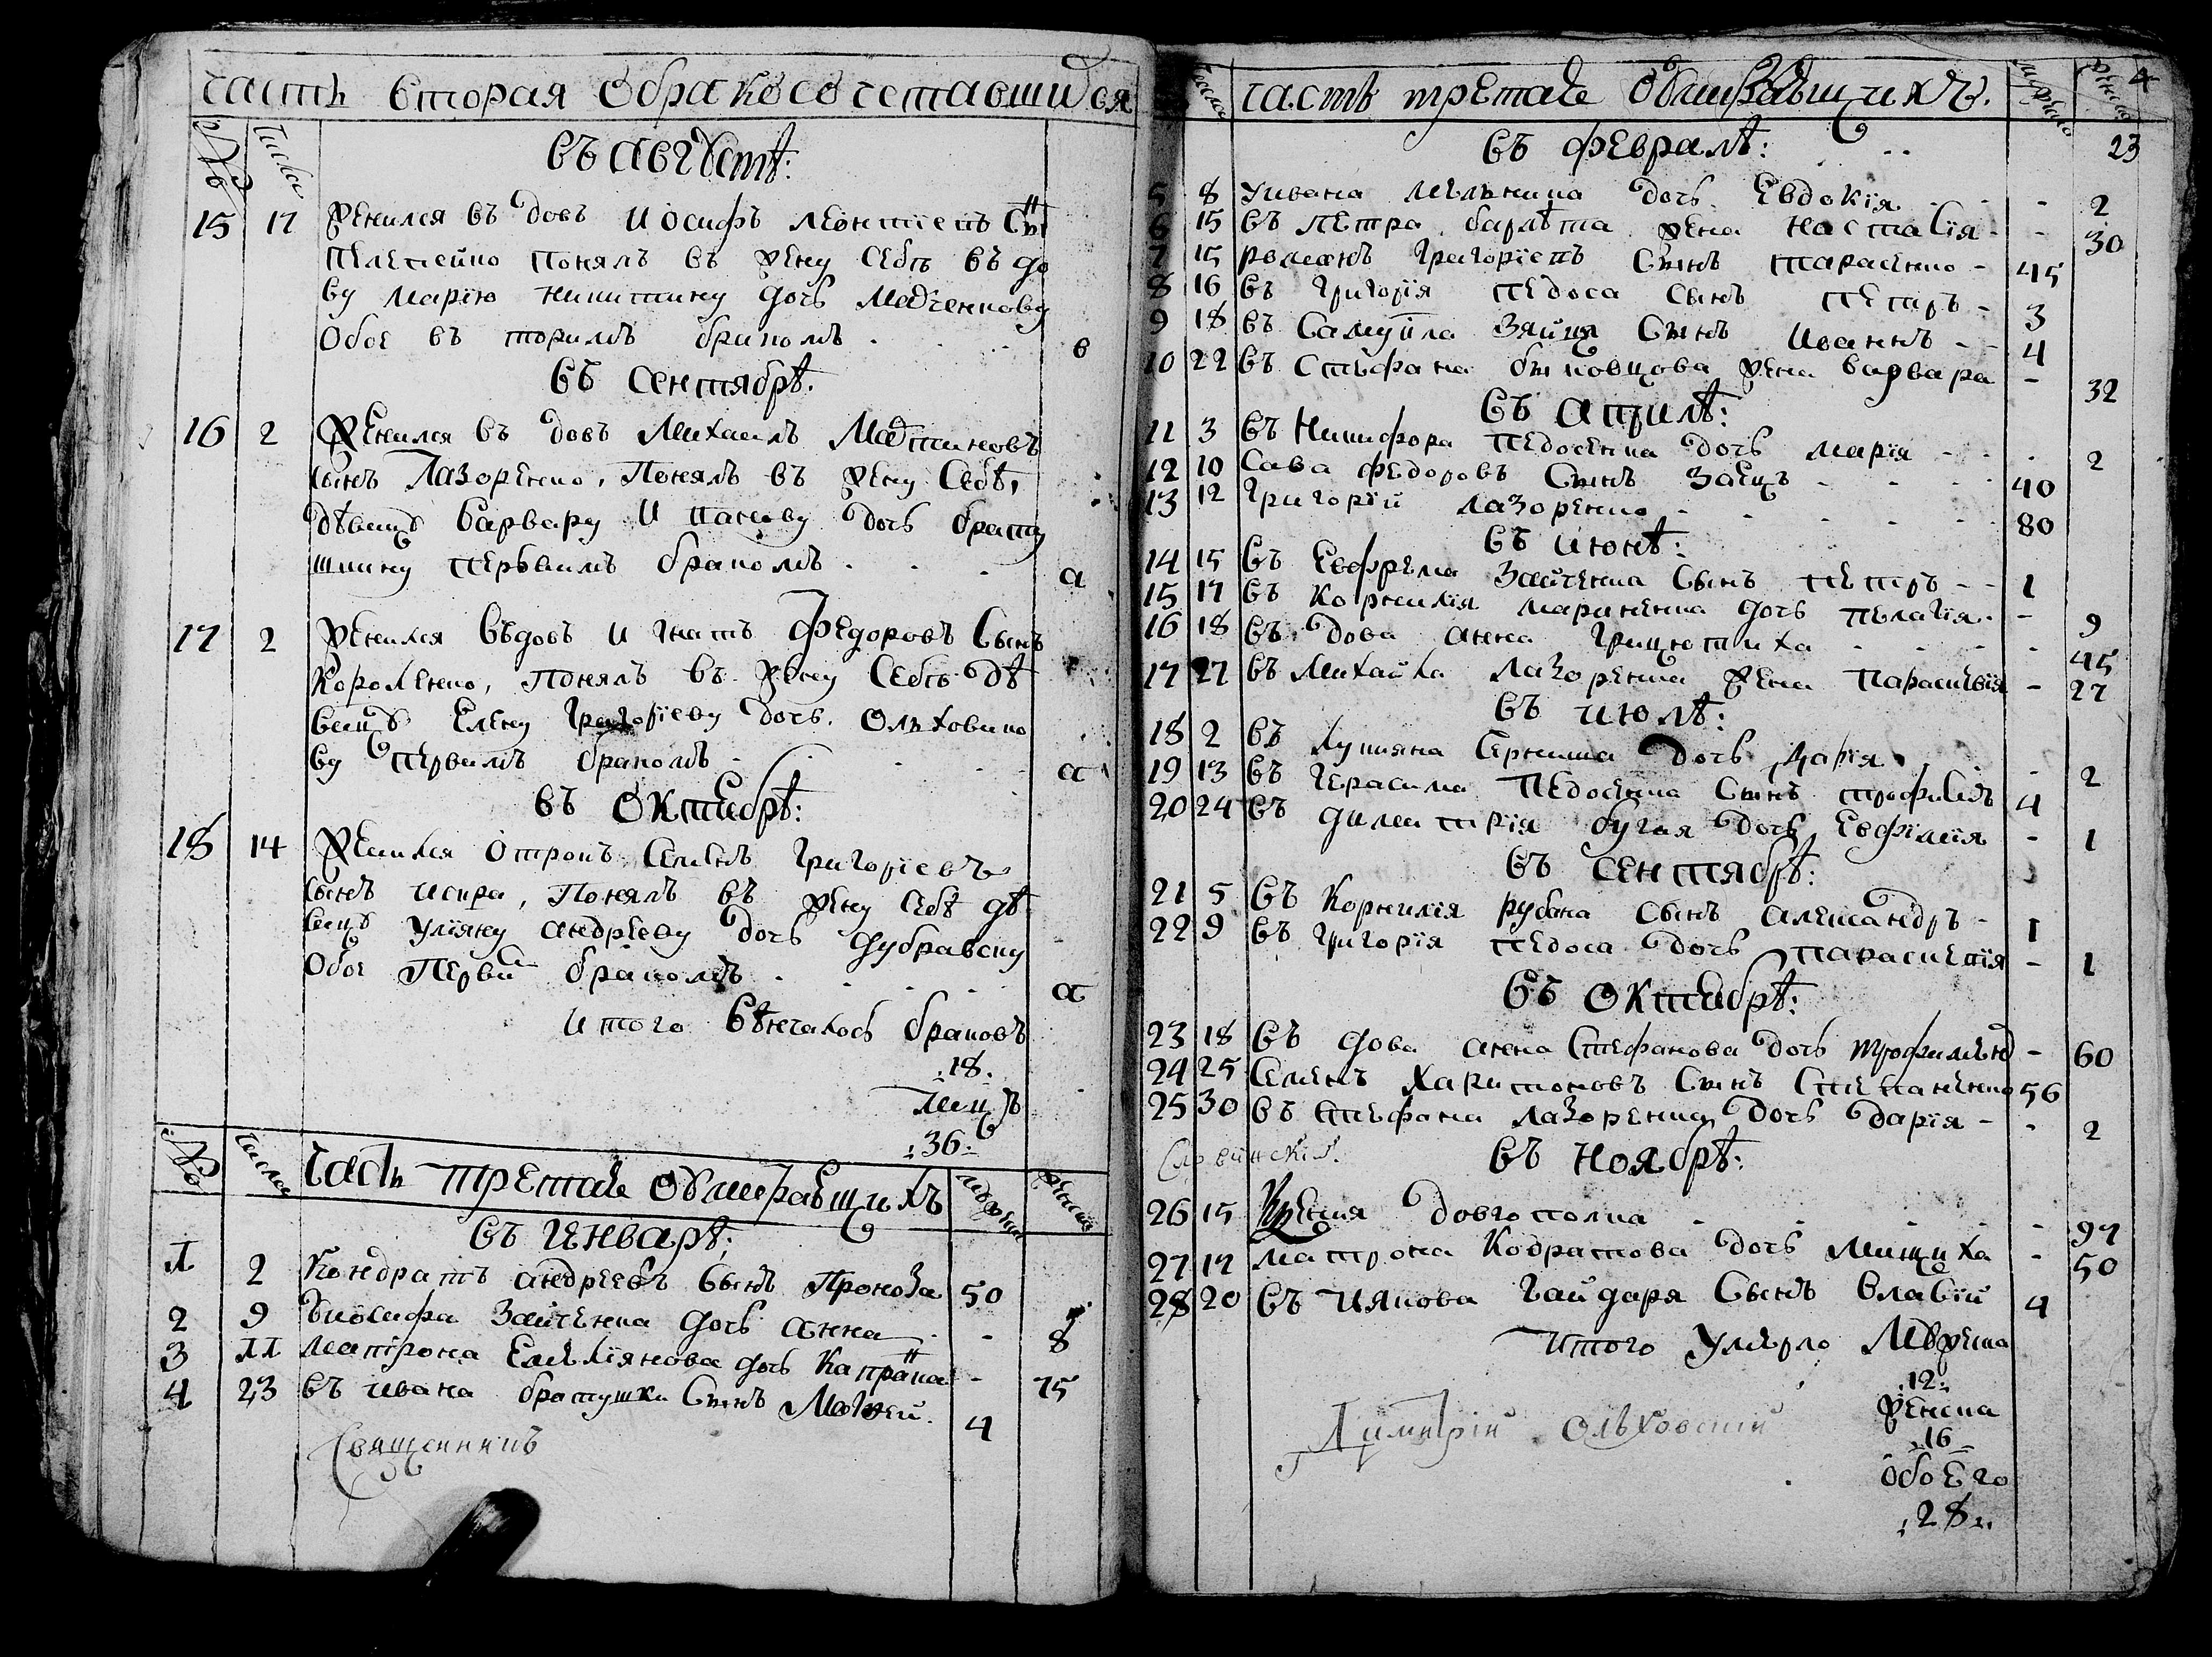 часть вторая о бракосочетавшихся
№ числа
въ августѣ:
15 17 женился въдовъ иосифъ леонтіевъ сынъ
пелепейко понялъ въ жену себѣ въдо
ву марїю никитину дочь
обое въ торимъ бракомъ в
въ сентябрѣ.
16 2 женился въдовъ михаилъ мартиновъ
сынъ лазоренко, понялъ въ жену себѣ,
дѣвицу варвару ианову дочь брату
шкину первимъ бракомъ а
17 2 женился въдовъ игнатъ федоровъ сынъ
короленко, понялъ въ жену себѣ дѣ
вицу елену григорїеву дочь олховико
ву первимъ бракомъ а
въ октябрѣ:
18 14 женился отрокъ семенъ григорїевъ
сынъ искра, понялъ въ жену себѣ дѣ
вицу улїяну андрееву дочь дубравску
обое перви бракомъ а
итого вѣнчалось браковъ
:18.
лицъ
:36:
№ числа часть третая о умиравшихъ мужеска женска
въ генварѣ:
1 2 кондратъ андреевъ сынъ проноза 50
2 9 въ иосифа зайченка дочь анна - 8
3 11 матрона емелїянова дочь - 75
4 23 въ ивана братушки сынъ мойсей. 4
священникъ
числа часть третая о умиравшихъ. мужеска женска 4
въ февралѣ: 23
5 8 у ивана мельника дочь евдокїя - 2
6 15 въ петра барлѣта жена настасїя - 30
7 15 романъ григорїевъ сынъ тарасенко - 45
8 16 въ григорїя педоса сынъ петръ - 3
9 18 въ самуила зайця сынъ иванъ - 4
10 22 въ стефана биковцова жена варвара - 32
въ априлѣ:
11 3 въ никифора педосенка дочь марїя - 2
12 10 сава федоровъ сынъ заецъ - 40
13 12 григорїй лазоренко - 80
въ июнѣ:
14 15 въ евфрема зайченка сынъ петръ - 1
15 17 въ корнилїя мариненка дочь пелагїя - 9
16 18 въдова анна грицютиха 45
17 27 въ михайла лазоренка жена параскевїя - 27
въ июлѣ:
18 2 въ лукияна дочь дарїя 2
19 13 въ герасима педосенка сынъ трофимъ 4
20 24 въ димитрїя бугая дочь евфимїя - 1
въ сентябрѣ:
21 5 въ корнилїя рубана сынъ александръ - 1
22 9 въ григорїя педоса дочь параскевїя - 1
въ октябрѣ:
23 18 въдова анна стефанова дочь - 60
24 25 семенъ харитоновъ сынъ степаненко 56
25 30 въ стефана лазоренка дочь дарїя - 2
въ ноябрѣ:
26 15 ксенія довгополка - 97
27 17 матрона кодратова дочь - 50
28 20 въ иякова гайдаря сынъ власїй 4
итого умерло мужеска
:12:
женска
:16
обоего
:28:
димитрїй ольховскій